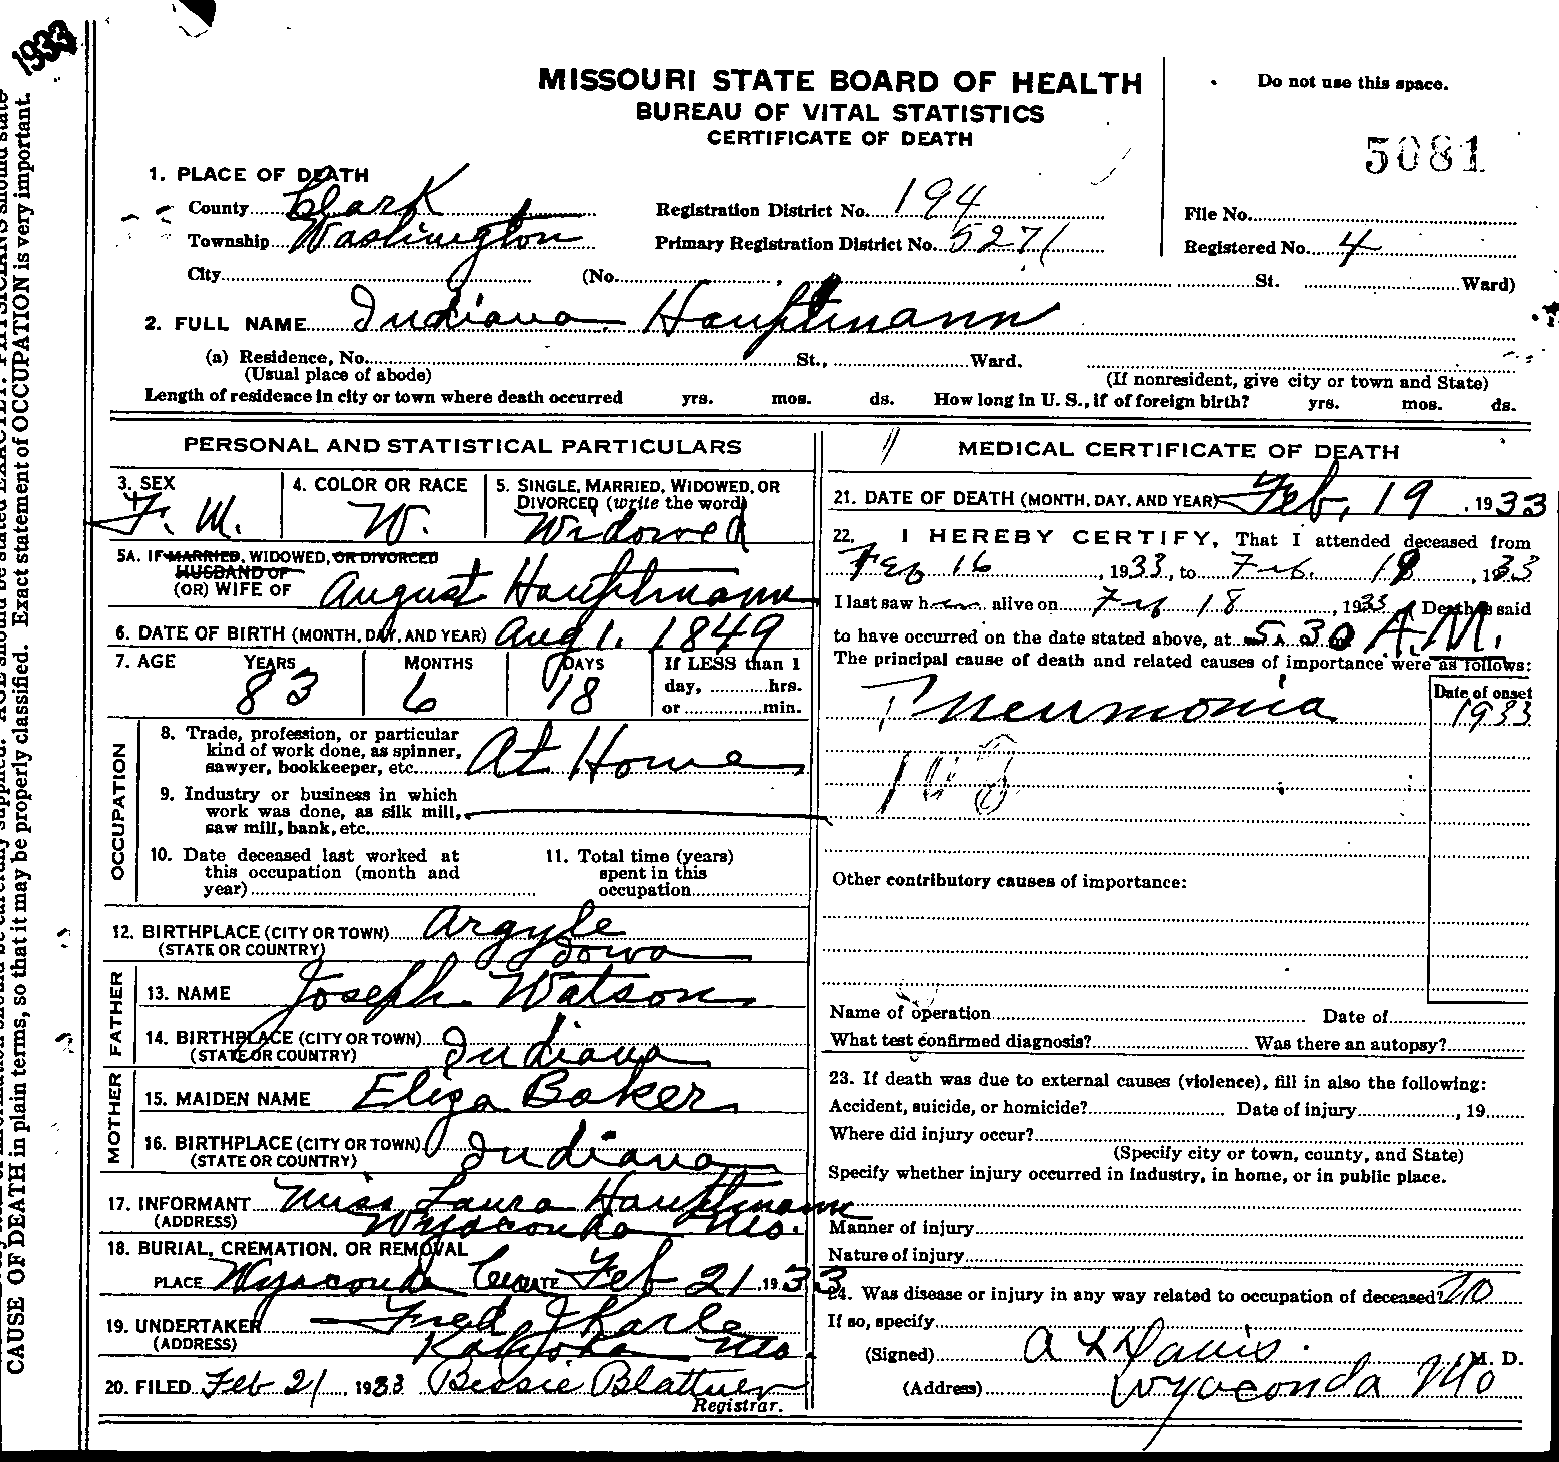 1933
MISSOURI STATE BOARD OF HEALTH
BUREAU OF VITAL STATISTICS
CERTIFICATE OF DEATH
Do not use this space.
5081
1. PLACE OF DEATH
County Clark
Township Washington
City (No. St. Ward)
Registration District No. 194
Primary Registration District No. 5271
File No.
Registered No. 4
2. FULL NAME Indiana Hauptmann
(a) Residence, No. St., Ward.
(Usual place of abode) (If nonresident, give city or town and State)
Length of residence in city or town where death occurred yrs. mos. ds. How long in U. S., if of foreign birth? yrs. mos. ds.
PERSONAL AND STATISTICAL PARTICULARS
3. SEX F. M.
4. COLOR OR RACE W.
5. SINGLE, MARRIED, WIDOWED, OR DIVORCED (write the word) Widowed
5A. IF MARRIED, WIDOWED, OR DIVORCED
HUSBAND OF
(OR) WIFE OF August Hauptmann
6. DATE OF BIRTH (MONTH, DAY, AND YEAR) Aug 1. 1849
7. AGE YEARS MONTHS DAYS If LESS than 1
83 6 18 day, hrs.
or min.
OCCUPATION
8. Trade, profession, or particular
kind of work done, as spinner,
sawyer, bookkeeper, etc. At Home
9. Industry or business in which
work was done, as silk mill,
saw mill, bank, etc.
10. Date deceased last worked at
this occupation (month and
year)
11. Total time (years)
spent in this
occupation
12. BIRTHPLACE (CITY OR TOWN) Argyle
(STATE OR COUNTRY) Iowa
FATHER
13. NAME Joseph Watson
14. BIRTHPLACE (CITY OR TOWN)
(STATE OR COUNTRY) Indiana
MOTHER
15. MAIDEN NAME Eliza Baker
16. BIRTHPLACE (CITY OR TOWN)
(STATE OR COUNTRY) Indiana
17. INFORMANT Miss Laura Hauptmann
(ADDRESS) Wyaconda Mo.
18. BURIAL, CREMATION, OR REMOVAL
PLACE Wyaconda Cem DATE Feb 21 1933
19. UNDERTAKER Fred Karle
(ADDRESS) Kahoka Mo.
20. FILED Feb 21, 1933 Bessie Blattner
Registrar.
MEDICAL CERTIFICATE OF DEATH
21. DATE OF DEATH (MONTH, DAY, AND YEAR) Feb, 19, 1933
22. I HEREBY CERTIFY, That I attended deceased from
Feb 16, 1933, to Feb. 18, 1933
I last saw her alive on Feb 18, 1933 Death is said
to have occurred on the date stated above, at 5:30 A.M.
The principal cause of death and related causes of importance were as follows:
Date of onset
Pneumonia 1933
Other contributory causes of importance:
Name of operation Date of
What test confirmed diagnosis? Was there an autopsy?
23. If death was due to external causes (violence), fill in also the following:
Accident, suicide, or homicide? Date of injury , 19
Where did injury occur?
(Specify city or town, county, and State)
Specify whether injury occurred in industry, in home, or in public place.
Manner of injury
Nature of injury
24. Was disease or injury in any way related to occupation of deceased? No
If so, specify
(Signed) A L Davis. M. D.
(Address) Wyaconda Mo
CAUSE OF DEATH in plain terms, so that it may be properly classified. Exact statement of OCCUPATION is very important.